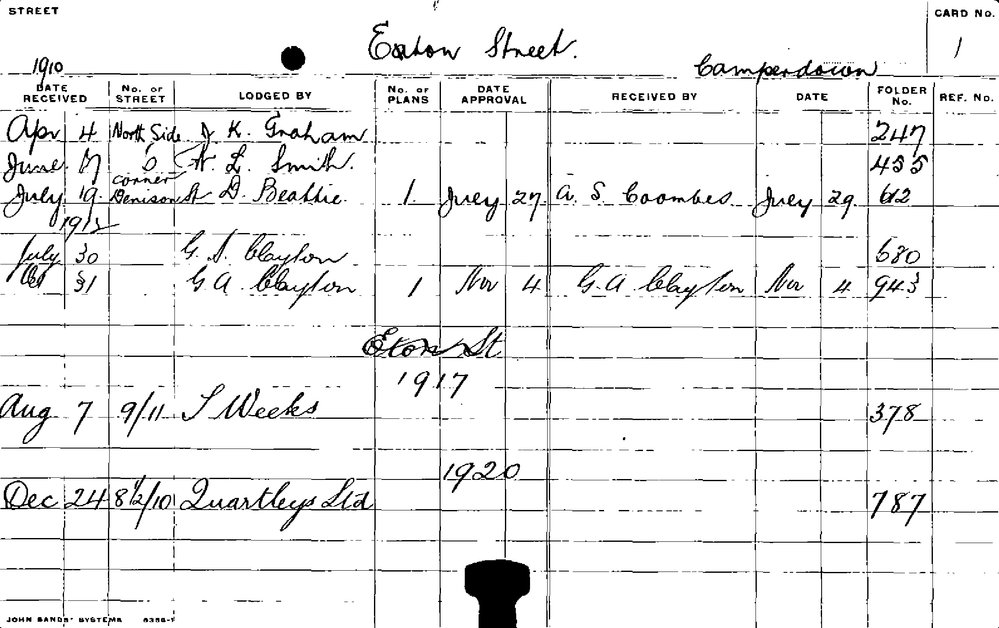 STREET
CARD No.
Eaton Street.
1
Camperdown
1910
DATE RECEIVED No. OF STREET LODGED BY No. OF PLANS DATE APPROVAL RECEIVED BY DATE FOLDER No. REF. No.
Apr 4 North Side J K. Graham 247
June 17 6 H. L. Smith. 455
July 19 corner Denison St D. Beattie. 1. July 27. A. S. Coombes July 29. 612
1912
July 30 G. A. Clayton 680
Oct 31 G A Clayton 1 Nov 4 G. A Clayton Nov 4 943
Eton St
1917
Aug 7 9/11 S Weeks 378
1920
Dec 24 8½/10 Quartleys Ltd 787
JOHN SANDS' SYSTEMS